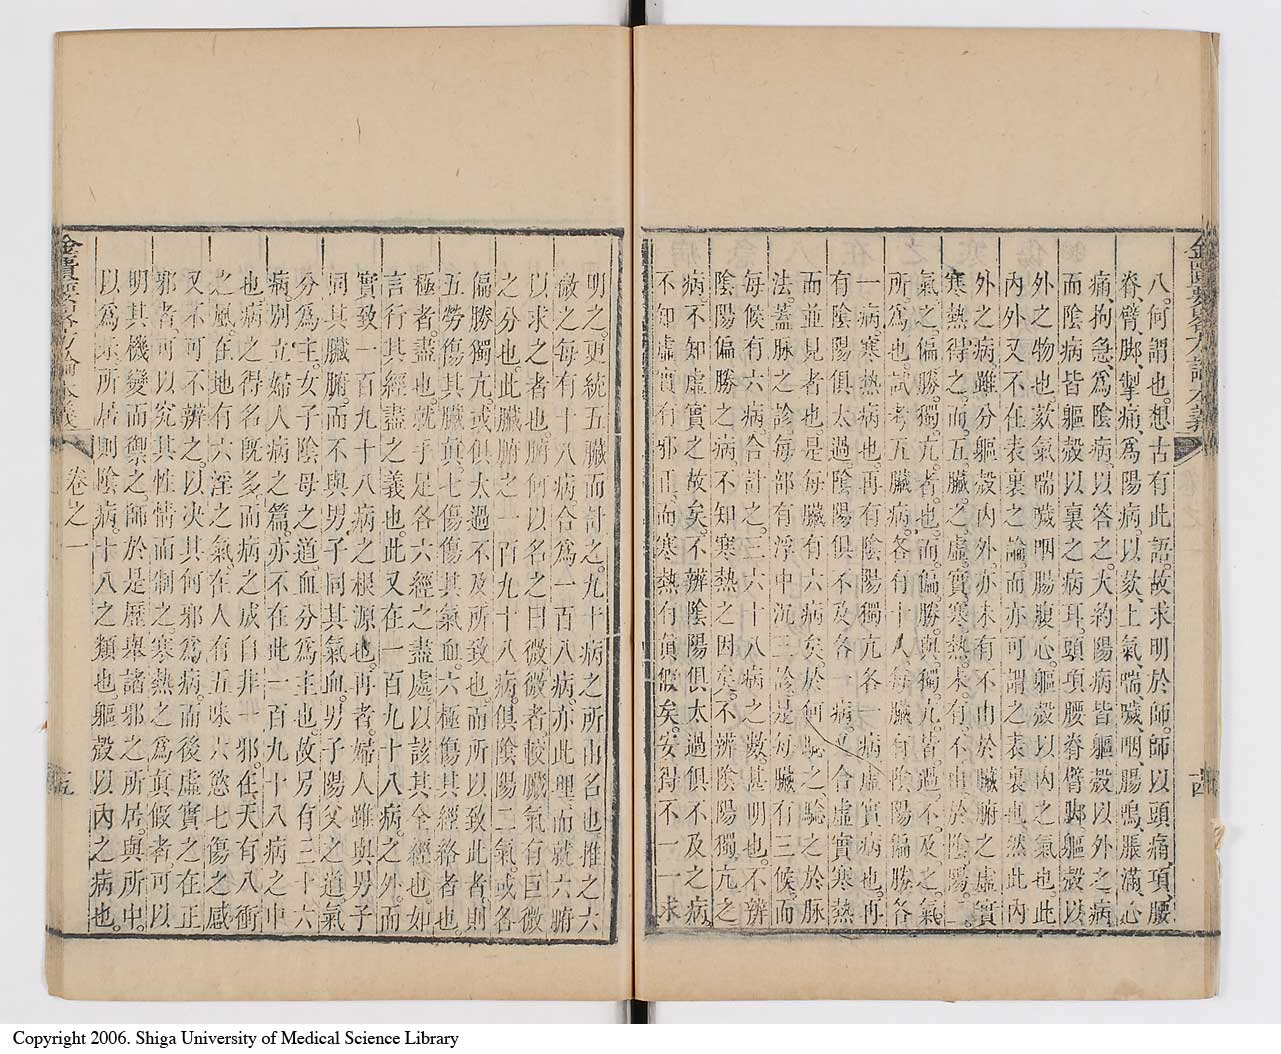 金匱要畧方論本義
八何謂也想古有此語故求明於師師以頭痛項腰
脊臂脚掣痛爲陽病以欬上氣喘噦咽腸鳴脹滿心
痛拘急爲陰病以答之大約陽病皆軀殼以外之病
而陰病皆軀殼以裏之病耳頭項腰脊臂脚軀殼以
外之物也欬氣喘噦咽腸腹心軀殼以內之氣也此
內外又不在表裏之論而亦可謂之表裏也然此內
外之病雖分軀殼內外亦未有不由於臟腑之虛實
寒熱得之而五臟之虛實寒熱未有不由於陰陽二
氣之偏勝獨亢者也而偏勝與獨亢皆過不及之氣
所爲也試考五臟病各有十八每臟有陰陽偏勝各
一病寒熱病也再有陰陽獨亢各一病虛實病也再
有陰陽俱太過陰陽俱不及各一病乃合虛實寒熱
而並見者也是每臟有六病矣於何騐之騐之於脉
法蓋脉之診每部有浮中沉三診是每臟有三候而
每候有六病合計之三六十八病之數甚明也不辨
陰陽偏勝之病不知寒熱之因矣不辨陰陽獨亢之
病不知虛實之故矣不辨陰陽俱太過俱不及之病
不知虛實有邪正而寒熱有眞假矣安得不一一求
十四
明之更統五臟而計之九十病之所由名也推之六
微之每有十八病合爲一百八病亦此理而就六腑
以求之者也腑何以名之曰微微者較臟氣有巨微
之分也此臟腑之一百九十八病俱陰陽二氣或各
偏勝獨亢或俱太過不及所致也而所以致此者則
五勞傷其臟眞七傷傷其氣血六極傷其經絡者也
極者盡也就手足各六經之盡處以該其全經也如
言行其經盡之義也此又在一百九十八病之外而
實致一百九十八病之根源也再者婦人雖與男子
同其臟腑而不與男子同其氣血男子陽父之道氣
分爲主女子陰母之道血分爲主也故另有三十六
病別立婦人病之篇亦不在此一百九十八病之中
也病之得名旣多而病之成自非一邪在天有八衝
之風在地有六淫之氣在人有五味六慾七傷之感
又不可不辨之以决其何邪爲病而後虛實之在正
邪者可以究其性情而制之寒熱之爲眞假者可以
明其機變而禦之師於是歷舉諸邪之所居與所中
以爲示所居則陰病十八之類也軀殼以內之病也
金匱要畧方論本義
卷之一
十五
Copyright 2006. Shiga University of Medical Science Library